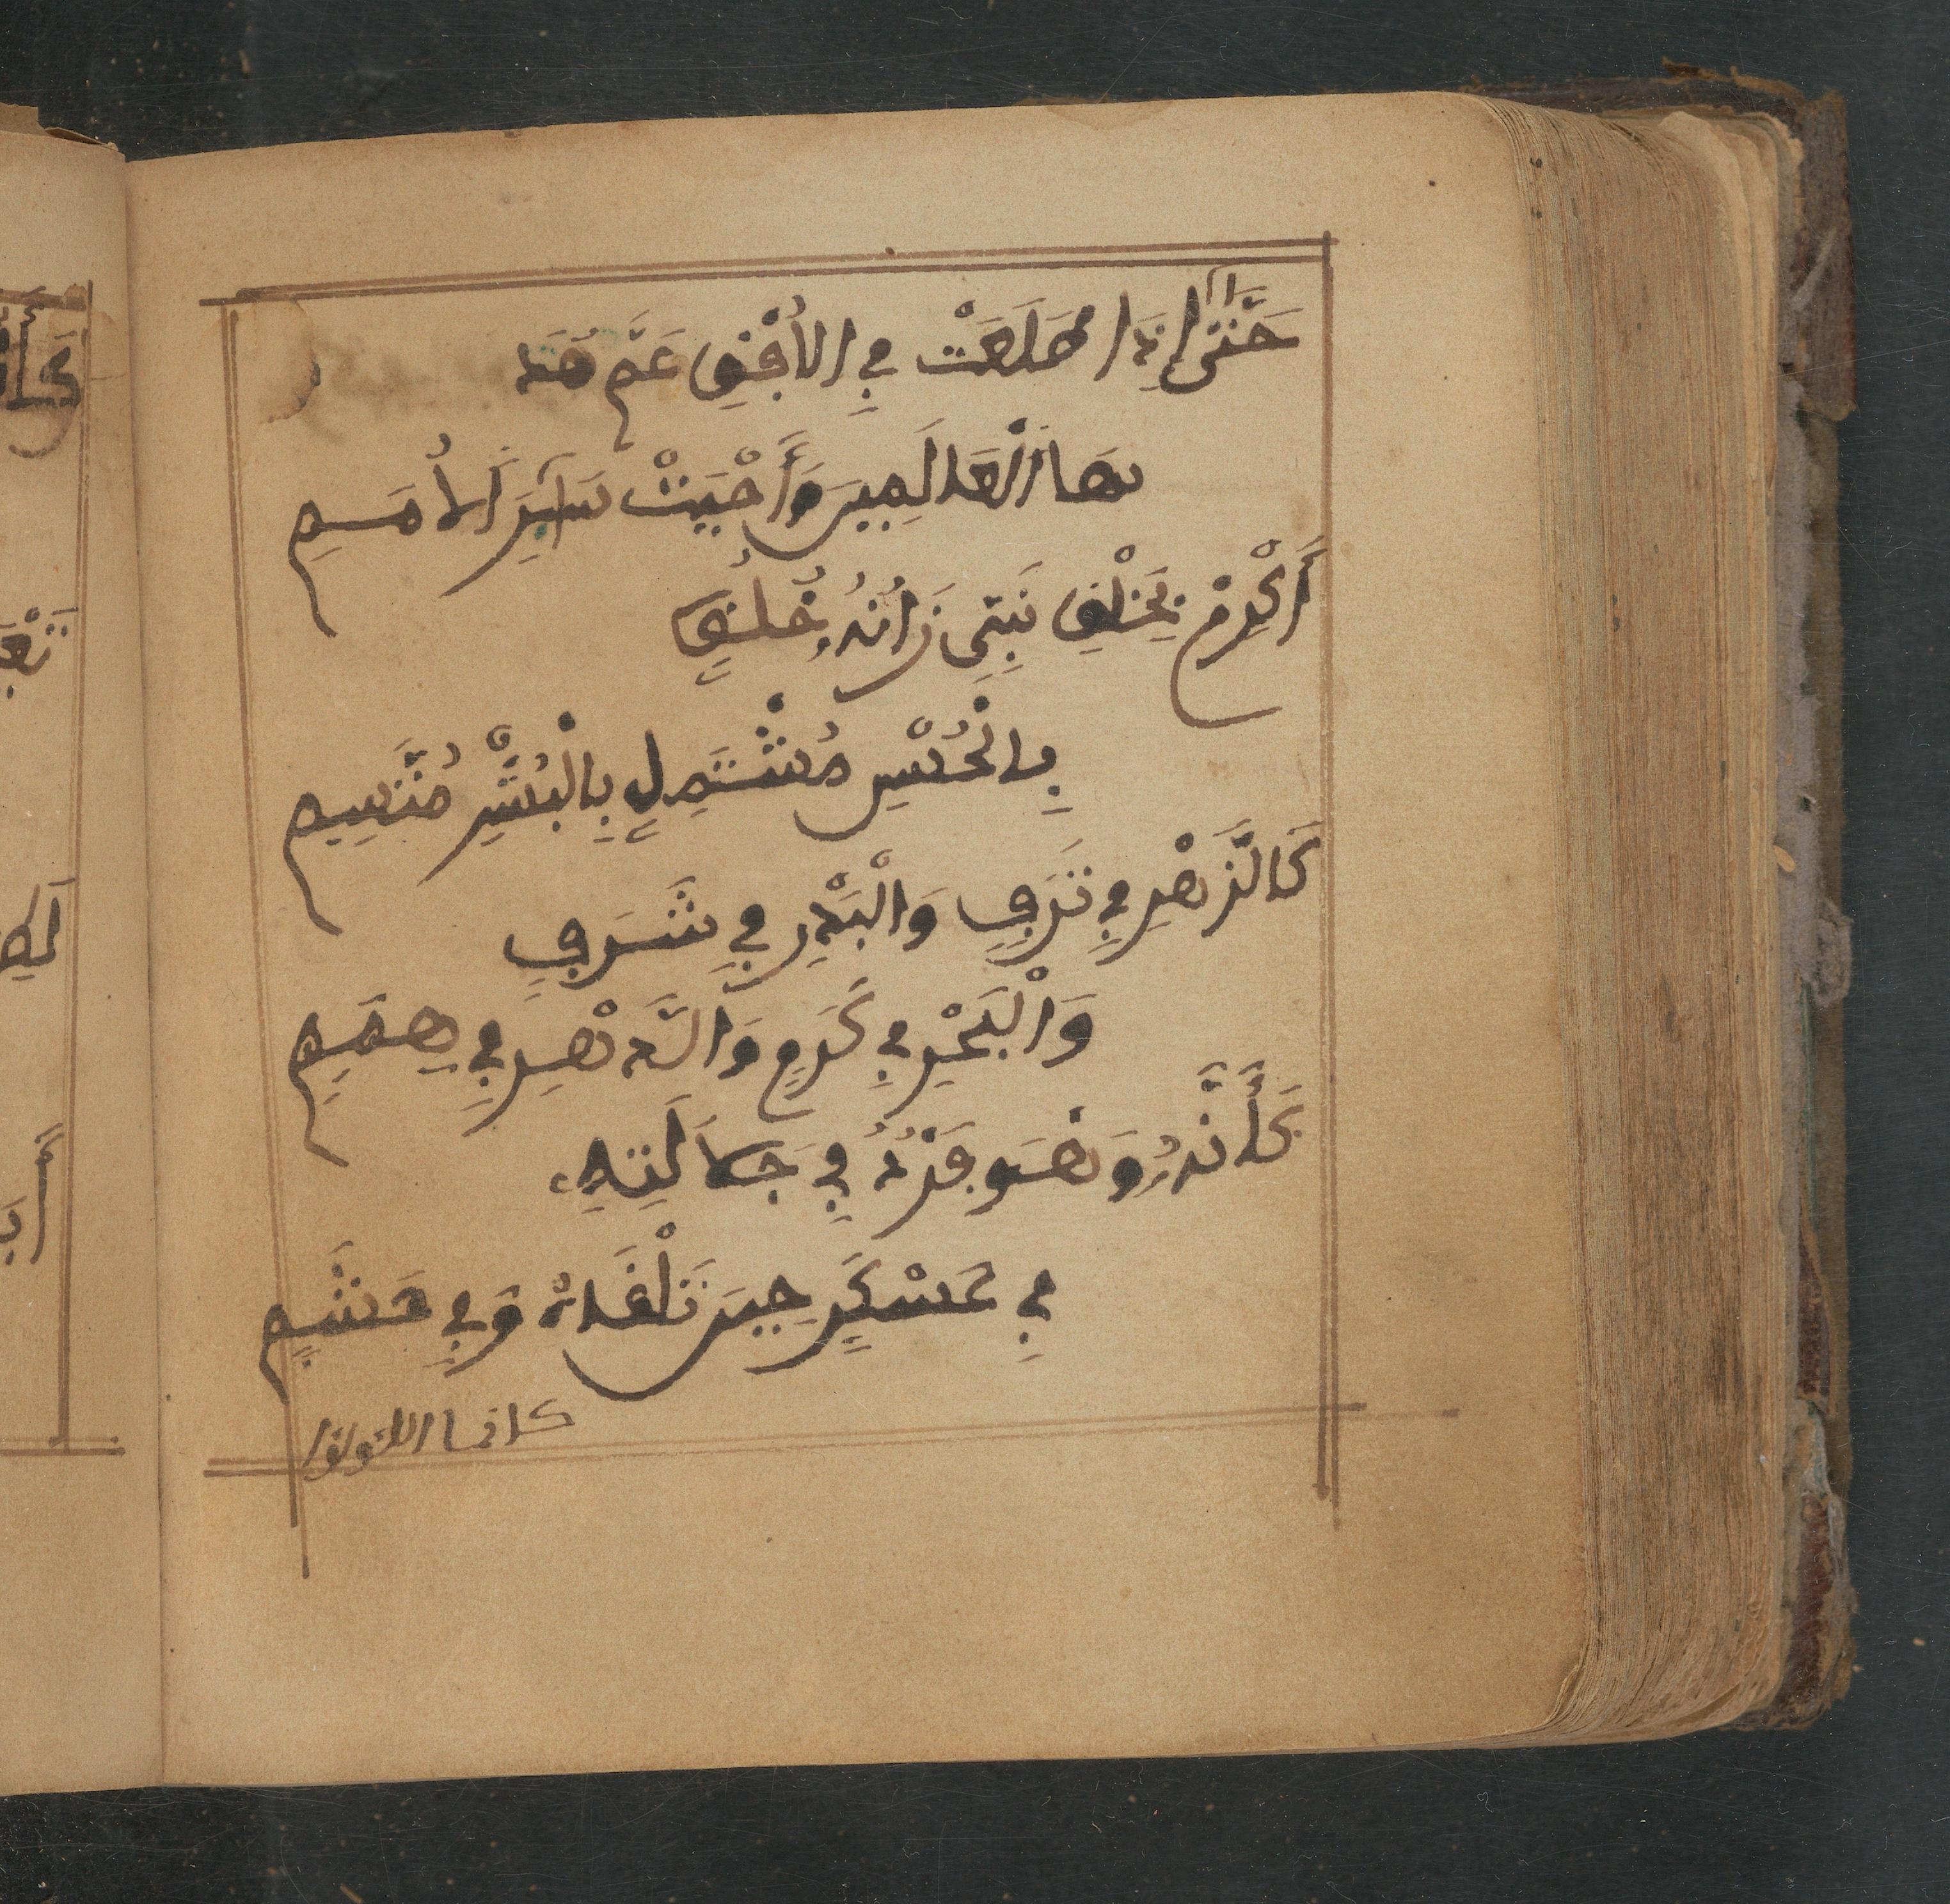 حَتَّى إِذَا طَلَعَتْ فِي الْأُفْقِ عَمَّ هُدَ
اهَا الْعَالَمِينَ وَأَحْيَتْ سَائِرَ الْأُمَمِ
أَكْرِمْ بِخَلْقِ نَبِيٍّ زَانَهُ خُلُقٌ
بِالْحُسْنِ مُشْتَمِلٍ بِالْبِشْرِ مُتَّسِمِ
كَالزَّهْرِ فِي تَرَفٍ وَالْبَدْرِ فِي شَرَفٍ
وَالْبَحْرِ فِي كَرَمٍ وَالدَّهْرِ فِي هِمَمِ
كَأَنَّهُ وَهْوَ فَرْدٌ فِي جَلَالَتِهِ
فِي عَسْكَرٍ حِينَ تَلْقَاهُ وَفِي حَشَمِ
كانما اللؤلؤا